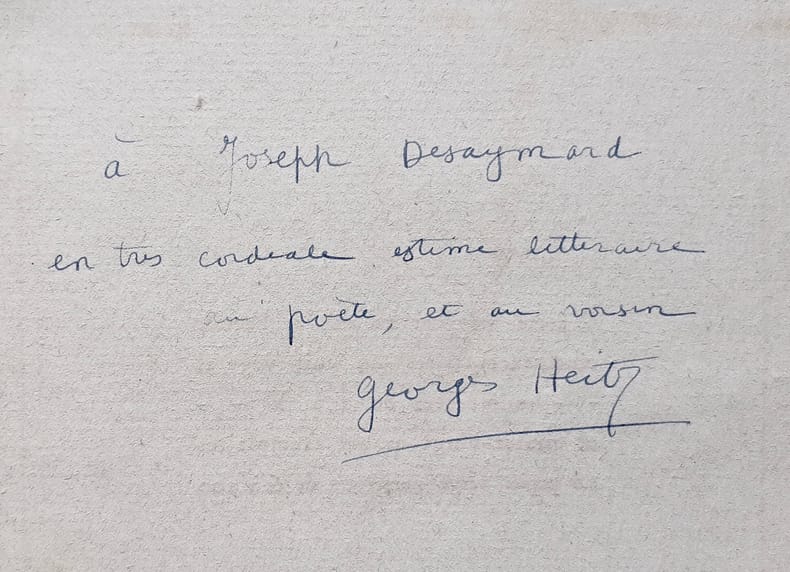 à Joseph Desaymard
en très cordiale estime littéraire
au poète, et au voisin
Georges Heitz